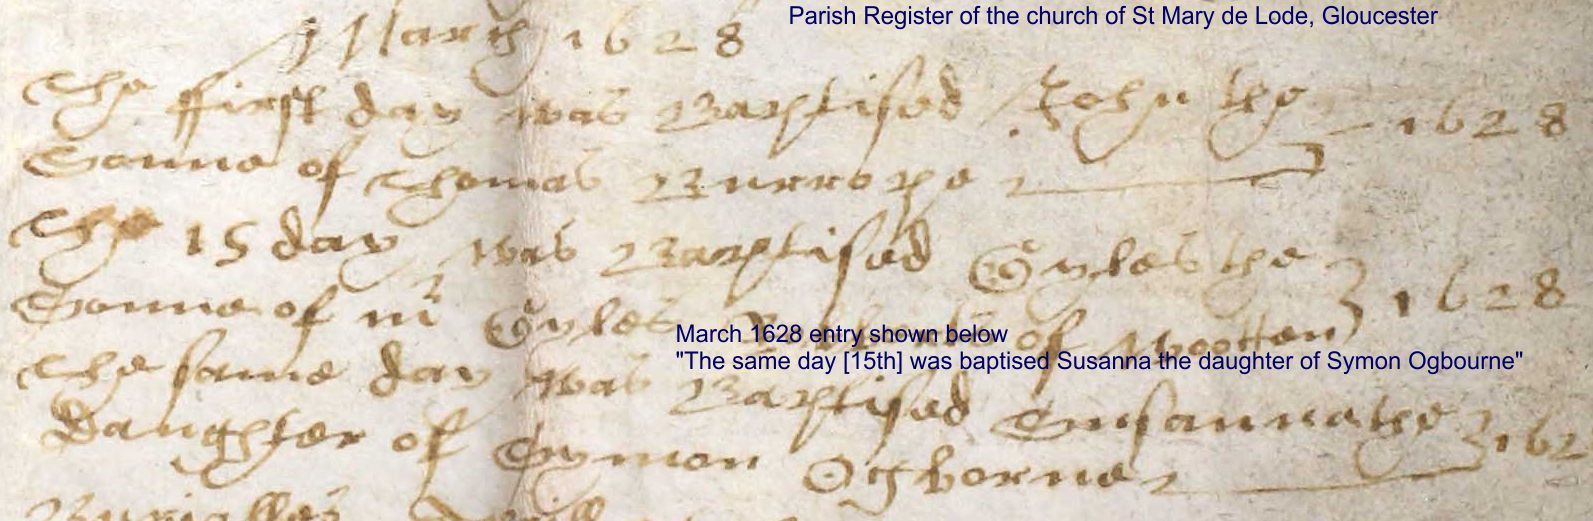 Parish Register of the church of St Mary de Lode, Gloucester
March 1628
The ffirst day was Baptised John the 1628
Sonne of Thomas Burrope
The 15 day was Baptised Gyles the 1628
Sonne of mr Gyles of Wootten
March 1628 entry shown below
"The same day [15th] was baptised Susanna the daughter of Symon Ogbourne"
The same day was Baptised Susanna the 162
Daughter of Symon Ogborne
Burialles